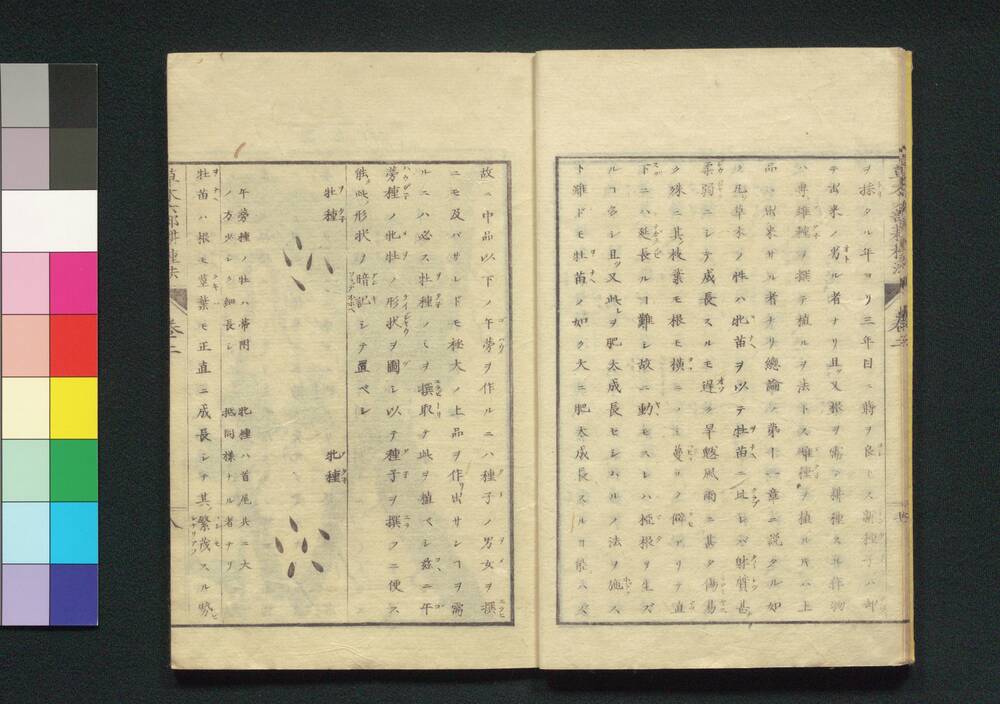 ヲ採タル年ヨリ三年目ニ蒔ヲ良トス新種子ハ却
テ出来ノ劣ル者ナリ且又根ヲ需ル耕種スル作物
ハ専雄種ヲ撰テ植ルヲ法トス雌種ヲ植ル片ハ上
品ハ出来サル者ナリ總論ノ第十一章ニ説タル如
ク凡草木ノ性ハ牝苗ヲ以テ牡苗ニ比レハ躰質甚
柔弱ニシテ成長スルモ遅ク旱魃風雨ニ甚タ傷易
ク殊ニ其枝葉モ根モ横ニノミ蔓リノ僻アリテ直
下ニハ延長ルヿ難シ故ニ動モスレハ椏根ヲ生ズ
ルヿ多シ且又此レヲ肥太成長セシムルノ法ヲ施ス
ト雖ドモ牡苗ノ如ク大ニ肥太成長スルヿ能ハズ
故ニ中品以下ノ午蒡ヲ作ルニハ種子ノ男女ヲ撰
ニモ及バサレドモ極大ノ上品ヲ作リ出サンヿヲ需
ルニハ必ス牡種ノミヲ撰取テ此ヲ植ベシ茲ニ午
蒡種ノ牝牡ノ形状ヲ圖シ以テ種子ヲ撰フニ便ス
能此形状ノ暗記シテ置ベシ
牡種
牝種
午蒡種ノ牡ハ蒂附
ノ方少シク細長シ
牝種ハ首尾共ニ大
抵同様ナル者ナリ
牡苗ハ根モ莖葉モ正直ニ成長シテ其繁茂スル勢
草木六部耕種法
巻十二